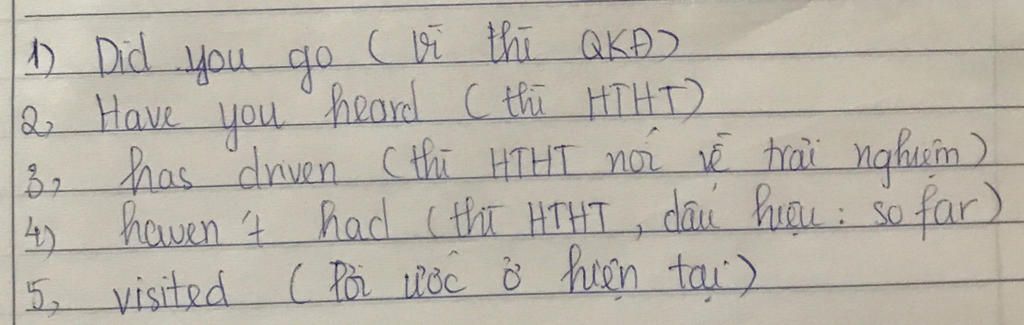 1) Did you go (vì thì QKĐ)
2, Have you heard (thì HTHT)
3, has driven (thì HTHT nói về trải nghiệm)
4) haven't had (thì HTHT, dấu hiệu: so far)
5, visited (lời ước ở hiện tại)